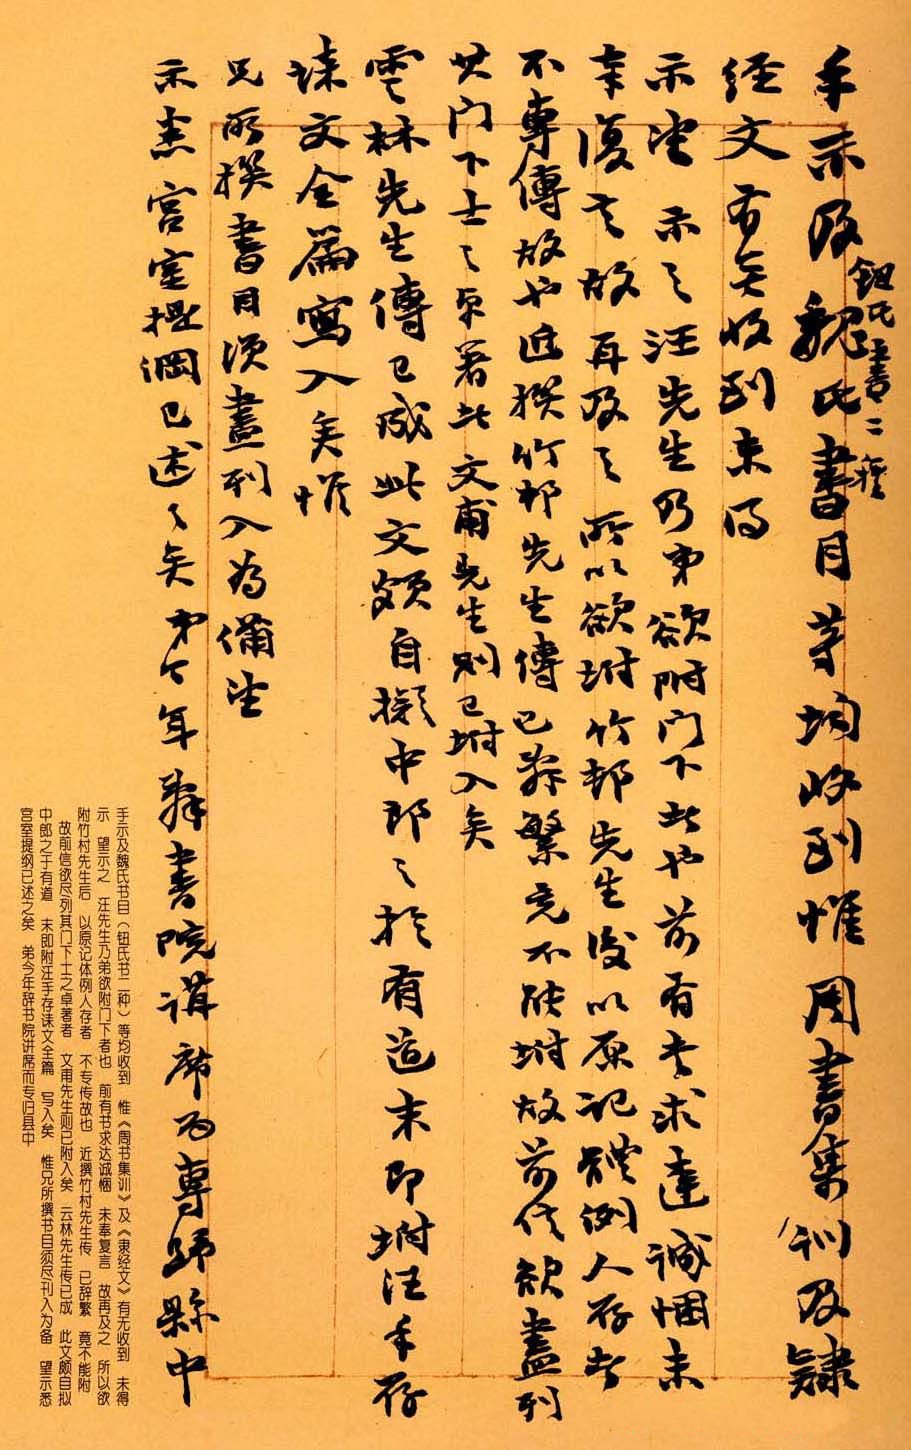 手示及魏氏書目等均收到惟周書集訓及隸
鈕氏書二種
經文有無收到未得
示望示之汪先生乃弟欲附門下者也前有書求達誠悃未
奉復言故再及之所以欲坿竹邨先生後以原記體例人存者
不專傳故也近撰竹邨先生傳已辭繁竟不能坿故前信欲盡列
其門下士之卓著者文甫先生則已坿入矣
雲林先生傳已成此文頗自擬中郎之於有道末即坿汪手存
誄文全篇寫入矣惟
兄所撰書目須盡刊入為備望
示悉宮室提綱已述之矣弟今年辭書院講席而專歸縣中
手示及魏氏书目（钮氏书二种）等均收到 惟《周书集训》及《隶经文》有无收到 未得
示 望示之 汪先生乃弟欲附门下者也 前有书求达诚悃 未奉复言 故再及之 所以欲
附竹村先生后 以原记体例人存者 不专传故也 近撰竹村先生传 已辞繁 竟不能附
故前信欲尽列其门下士之卓著者 文甫先生则已附入矣 云林先生传已成 此文颇自拟
中郎之于有道 末即附汪手存诔文全篇 写入矣 惟兄所撰书目须尽刊入为备 望示悉
宫室提纲已述之矣 弟今年辞书院讲席而专归县中